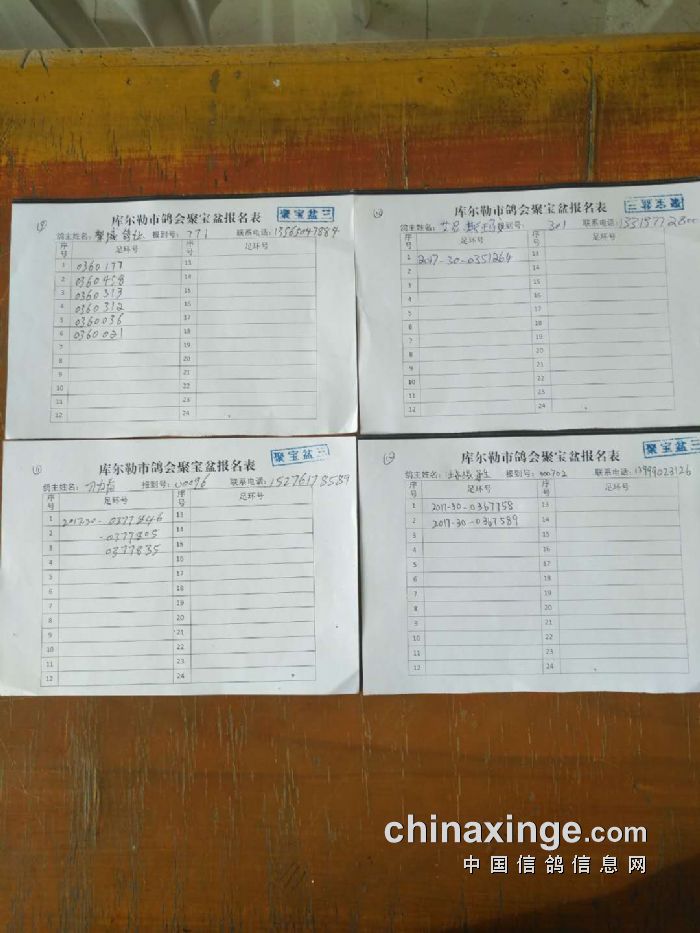 库尔勒市鸽会聚宝盆报名表
聚宝盆三
鸽主姓名: 鸽社 报到号: 771 联系电话: 13565047884
序号 足环号 序号 足环号
1 0360177 13
2 0360458 14
3 0360313 15
4 0360312 16
5 0360036 17
6 0360021 18
7 19
8 20
9 21
10 22
11 23
12 24
库尔勒市鸽会聚宝盆报名表
聚宝盆三
鸽主姓名: 报到号: 301 联系电话:
序号 足环号 序号 足环号
1 2017-30-0351264 13
2 14
3 15
4 16
5 17
6 18
7 19
8 20
9 21
10 22
11 23
12 24
库尔勒市鸽会聚宝盆报名表
聚宝盆三
鸽主姓名: 报到号: 00096 联系电话: 15276178589
序号 足环号 序号 足环号
1 2017-30-0377846 13
2 -0377805 14
3 0377835 15
4 16
5 17
6 18
7 19
8 20
9 21
10 22
11 23
12 24
库尔勒市鸽会聚宝盆报名表
聚宝盆三
鸽主姓名: 报到号: 000702 联系电话: 13999023126
序号 足环号 序号 足环号
1 2017-30-0367758 13
2 2017-30-0367589 14
3 15
4 16
5 17
6 18
7 19
8 20
9 21
10 22
11 23
12 24
chinaxinge.com
中国信鸽信息网